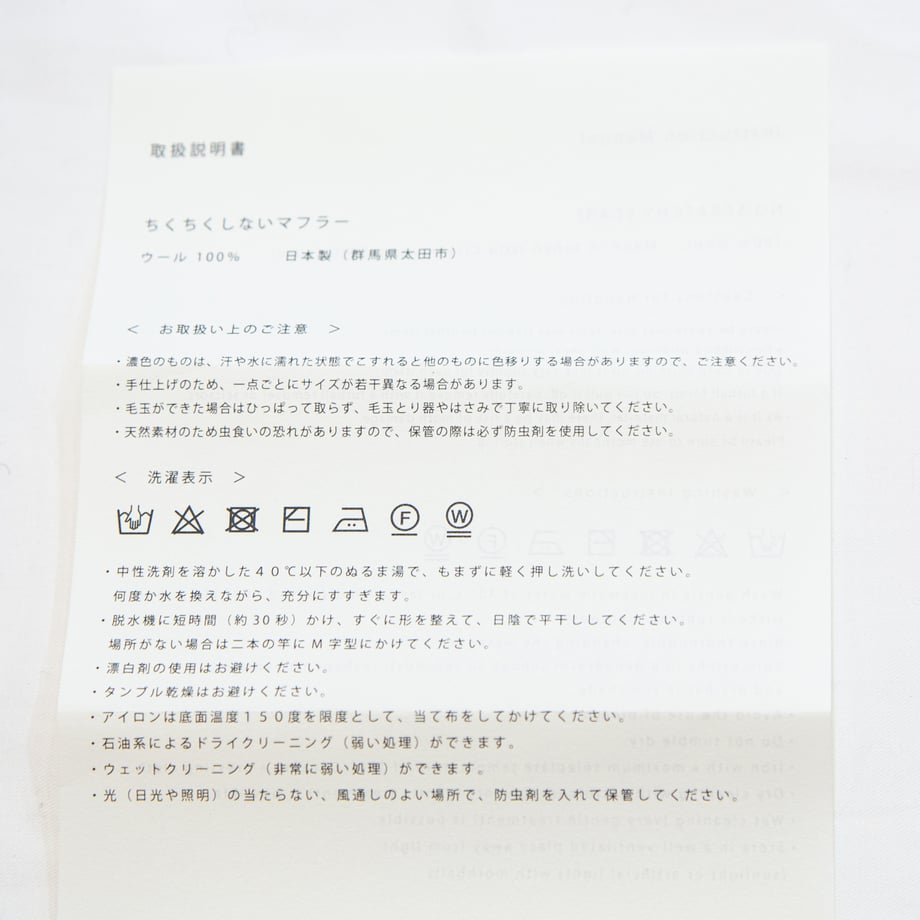 取扱説明書
ちくちくしないマフラー
ウール 100% 日本製（群馬県太田市）
＜ お取扱い上のご注意 ＞
・濃色のものは、汗や水に濡れた状態でこすれると他のものに色移りする場合がありますので、ご注意ください。
・手仕上げのため、一点ごとにサイズが若干異なる場合があります。
・毛玉ができた場合はひっぱって取らず、毛玉とり器やはさみで丁寧に取り除いてください。
・天然素材のため虫食いの恐れがありますので、保管の際は必ず防虫剤を使用してください。
＜ 洗濯表示 ＞
F W
・中性洗剤を溶かした４０℃以下のぬるま湯で、もまずに軽く押し洗いしてください。
何度か水を換えながら、充分にすすぎます。
・脱水機に短時間（約30秒）かけ、すぐに形を整えて、日陰で平干ししてください。
場所がない場合は二本の竿にＭ字型にかけてください。
・漂白剤の使用はお避けください。
・タンブル乾燥はお避けください。
・アイロンは底面温度１５０度を限度として、当て布をしてかけてください。
・石油系によるドライクリーニング（弱い処理）ができます。
・ウェットクリーニング（非常に弱い処理）ができます。
・光（日光や照明）の当たらない、風通しのよい場所で、防虫剤を入れて保管してください。